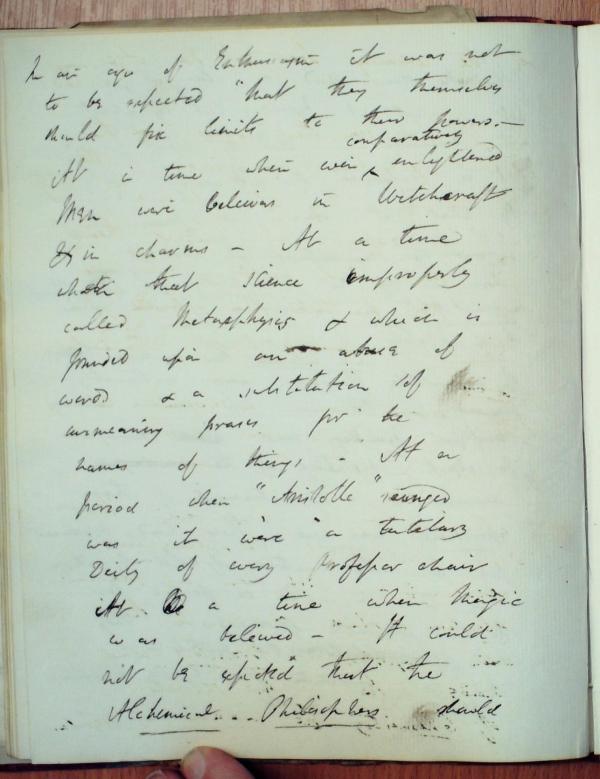 In an age of Enthusiasm it was not
to be expected "that they themselves
should fix limits to their powers.—
comparatively
At a time when even ‸ enlightened
Men were believers in Witchcraft
& in charms — At a time
when that science improperly
called Metaphysics & which is
founded upon an abuse of
words & a substitution of
unmeaning phrases for the
names of things — At a
period when "Aristotle"
was as it were "a tutelary
Deity of every Professor chair
At a time when Magic
was believed — It could
not be expected that the
Alchemical Philosophers should